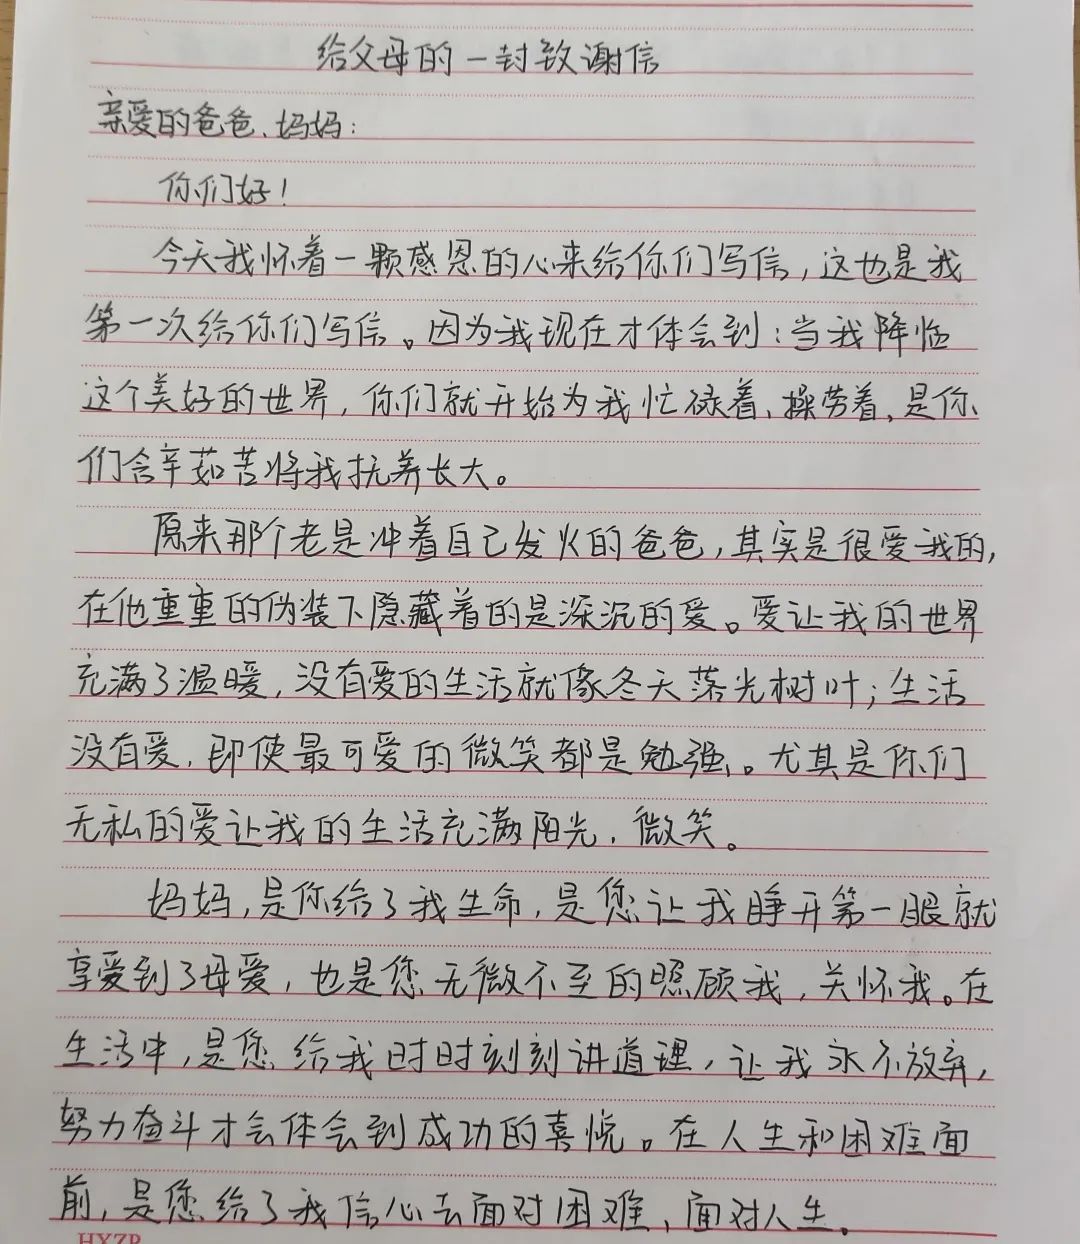 给父母的一封致谢信
亲爱的爸爸、妈妈:
你们好!
今天我怀着一颗感恩的心来给你们写信,这也是我
第一次给你们写信。因为我现在才体会到:当我降临
这个美好的世界,你们就开始为我忙碌着、操劳着,是你
们含辛茹苦将我抚养长大。
原来那个老是冲着自己发火的爸爸,其实是很爱我的,
在他重重的伪装下隐藏着的是深沉的爱。爱让我的世界
充满了温暖,没有爱的生活就像冬天落光树叶;生活
没有爱,即使最可爱的微笑都是勉强。尤其是你们
无私的爱让我的生活充满阳光、微笑。
妈妈,是你给了我生命,是您让我睁开第一眼就
享受到了母爱,也是您无微不至的照顾我,关怀我。在
生活中,是您给我时时刻刻讲道理,让我永不放弃,
努力奋斗才会体会到成功的喜悦。在人生和困难面
前,是您给了我信心去面对困难、面对人生。
HXZP